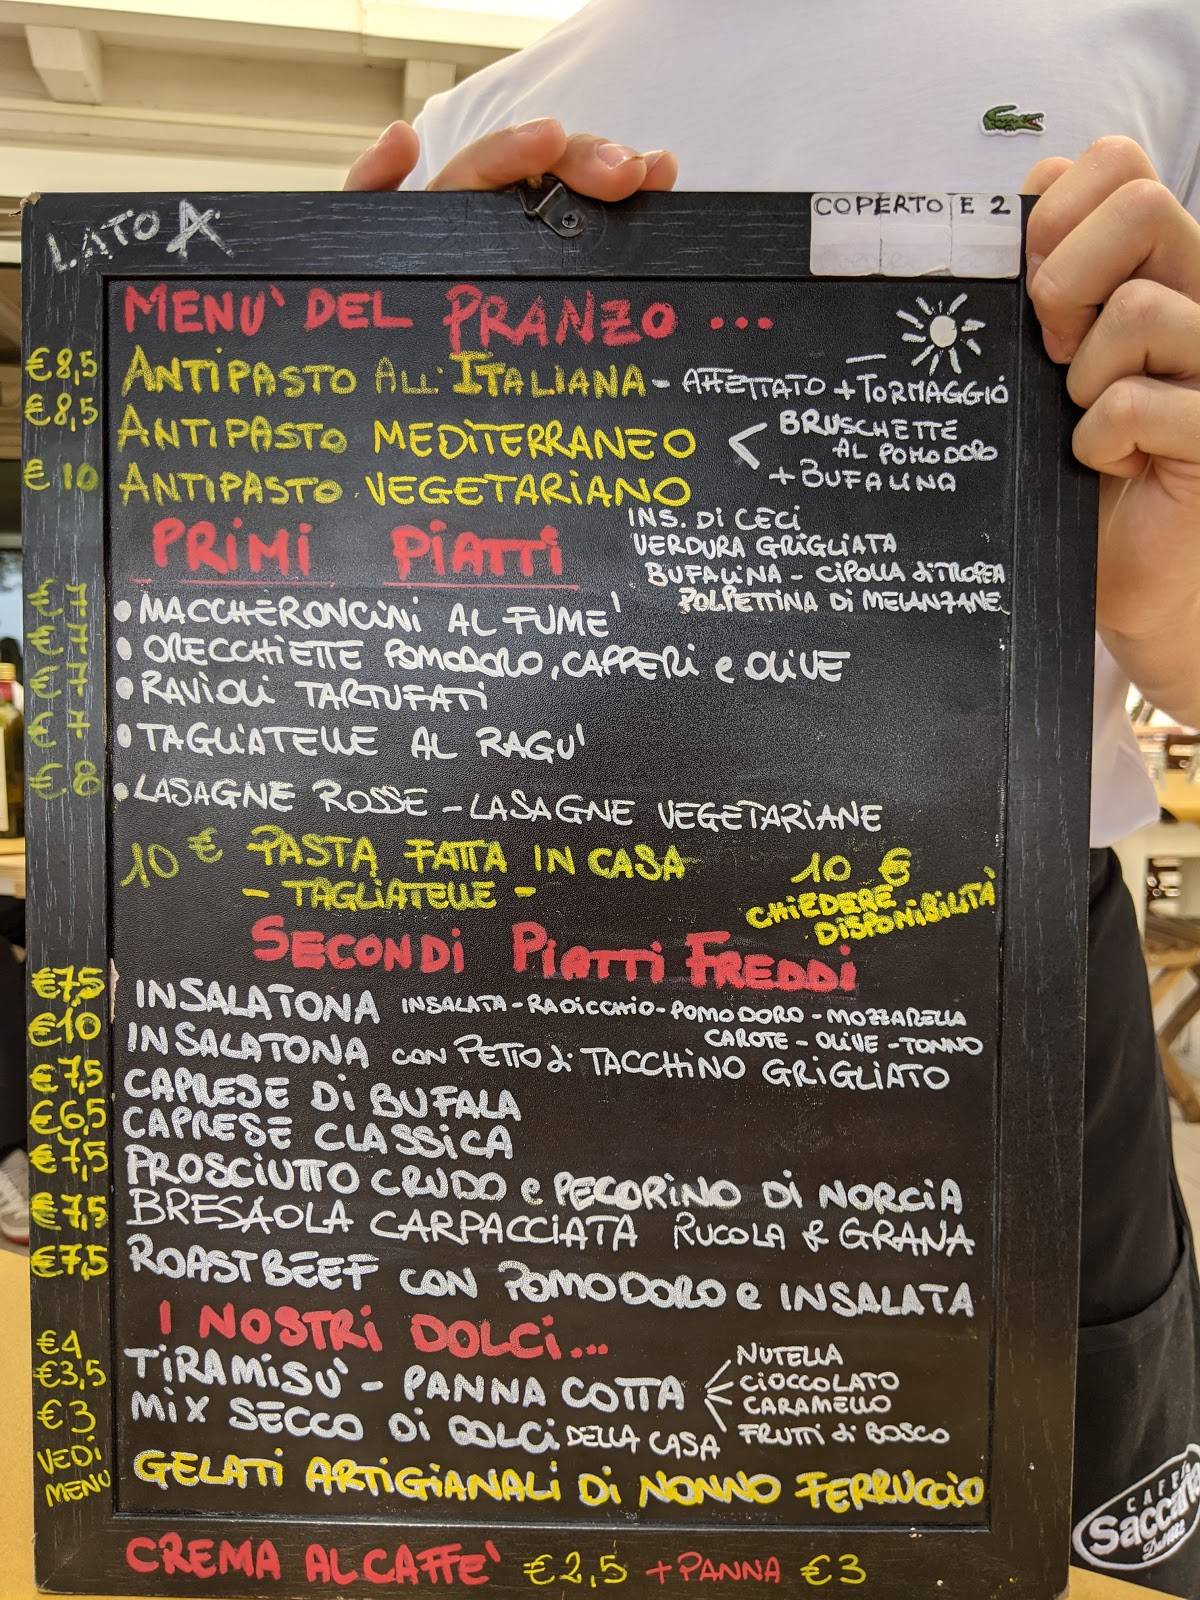 LATO A
COPERTO E 2
MENU' DEL PRANZO ...
€ 8,5 ANTIPASTO ALL' ITALIANA - AFFETTATO + FORMAGGIO
€ 8,5 ANTIPASTO MEDITERRANEO < BRUSCHETTE
AL POMODORO
+ BUFALINA
€ 10 ANTIPASTO VEGETARIANO
INS. Di CECI
VERDURA GRIGLIATA
BUFALINA - CIPOLLA di TROPEA
POLPETTINA Di MELANZANE
PRIMI PIATTI
€ 7 • MACCHERONCINI AL FUME'
€ 7 • ORECCHIETTE POMODORO, CAPPERI e OLIVE
€ 7 • RAVIOLI TARTUFATI
€ 7 • TAGLIATELLE AL RAGU'
€ 8 • LASAGNE ROSSE - LASAGNE VEGETARIANE
10 € PASTA FATTA IN CASA 10 €
- TAGLIATELLE - CHIEDERE
DISPONIBILITÀ
SECONDI PIATTI FREDDI
€ 7,5 INSALATONA INSALATA - RADICCHIO - POMODORO - MOZZARELLA
CAROTE - OLIVE - TONNO
€ 10 INSALATONA CON PETTO di TACCHINO GRIGLIATO
€ 7,5 CAPRESE Di BUFALA
€ 6,5 CAPRESE CLASSICA
€ 7,5 PROSCIUTTO CRUDO e PECORINO DI NORCIA
€ 7,5 BRESAOLA CARPACCIATA RUCOLA & GRANA
€ 7,5 ROASTBEEF CON POMODORO e INSALATA
I NOSTRI DOLCI ...
€ 4
€ 3,5 TIRAMISU' - PANNA COTTA
NUTELLA
CIOCCOLATO
CARAMELLO
FRUTTI di BOSCO
€ 3 MIX SECCO DI DOLCI DELLA CASA
VEDI
MENU GELATI ARTIGIANALI Di NONNO FERRUCCIO
CREMA AL CAFFE' € 2,5 + PANNA € 3
CAFFÈ